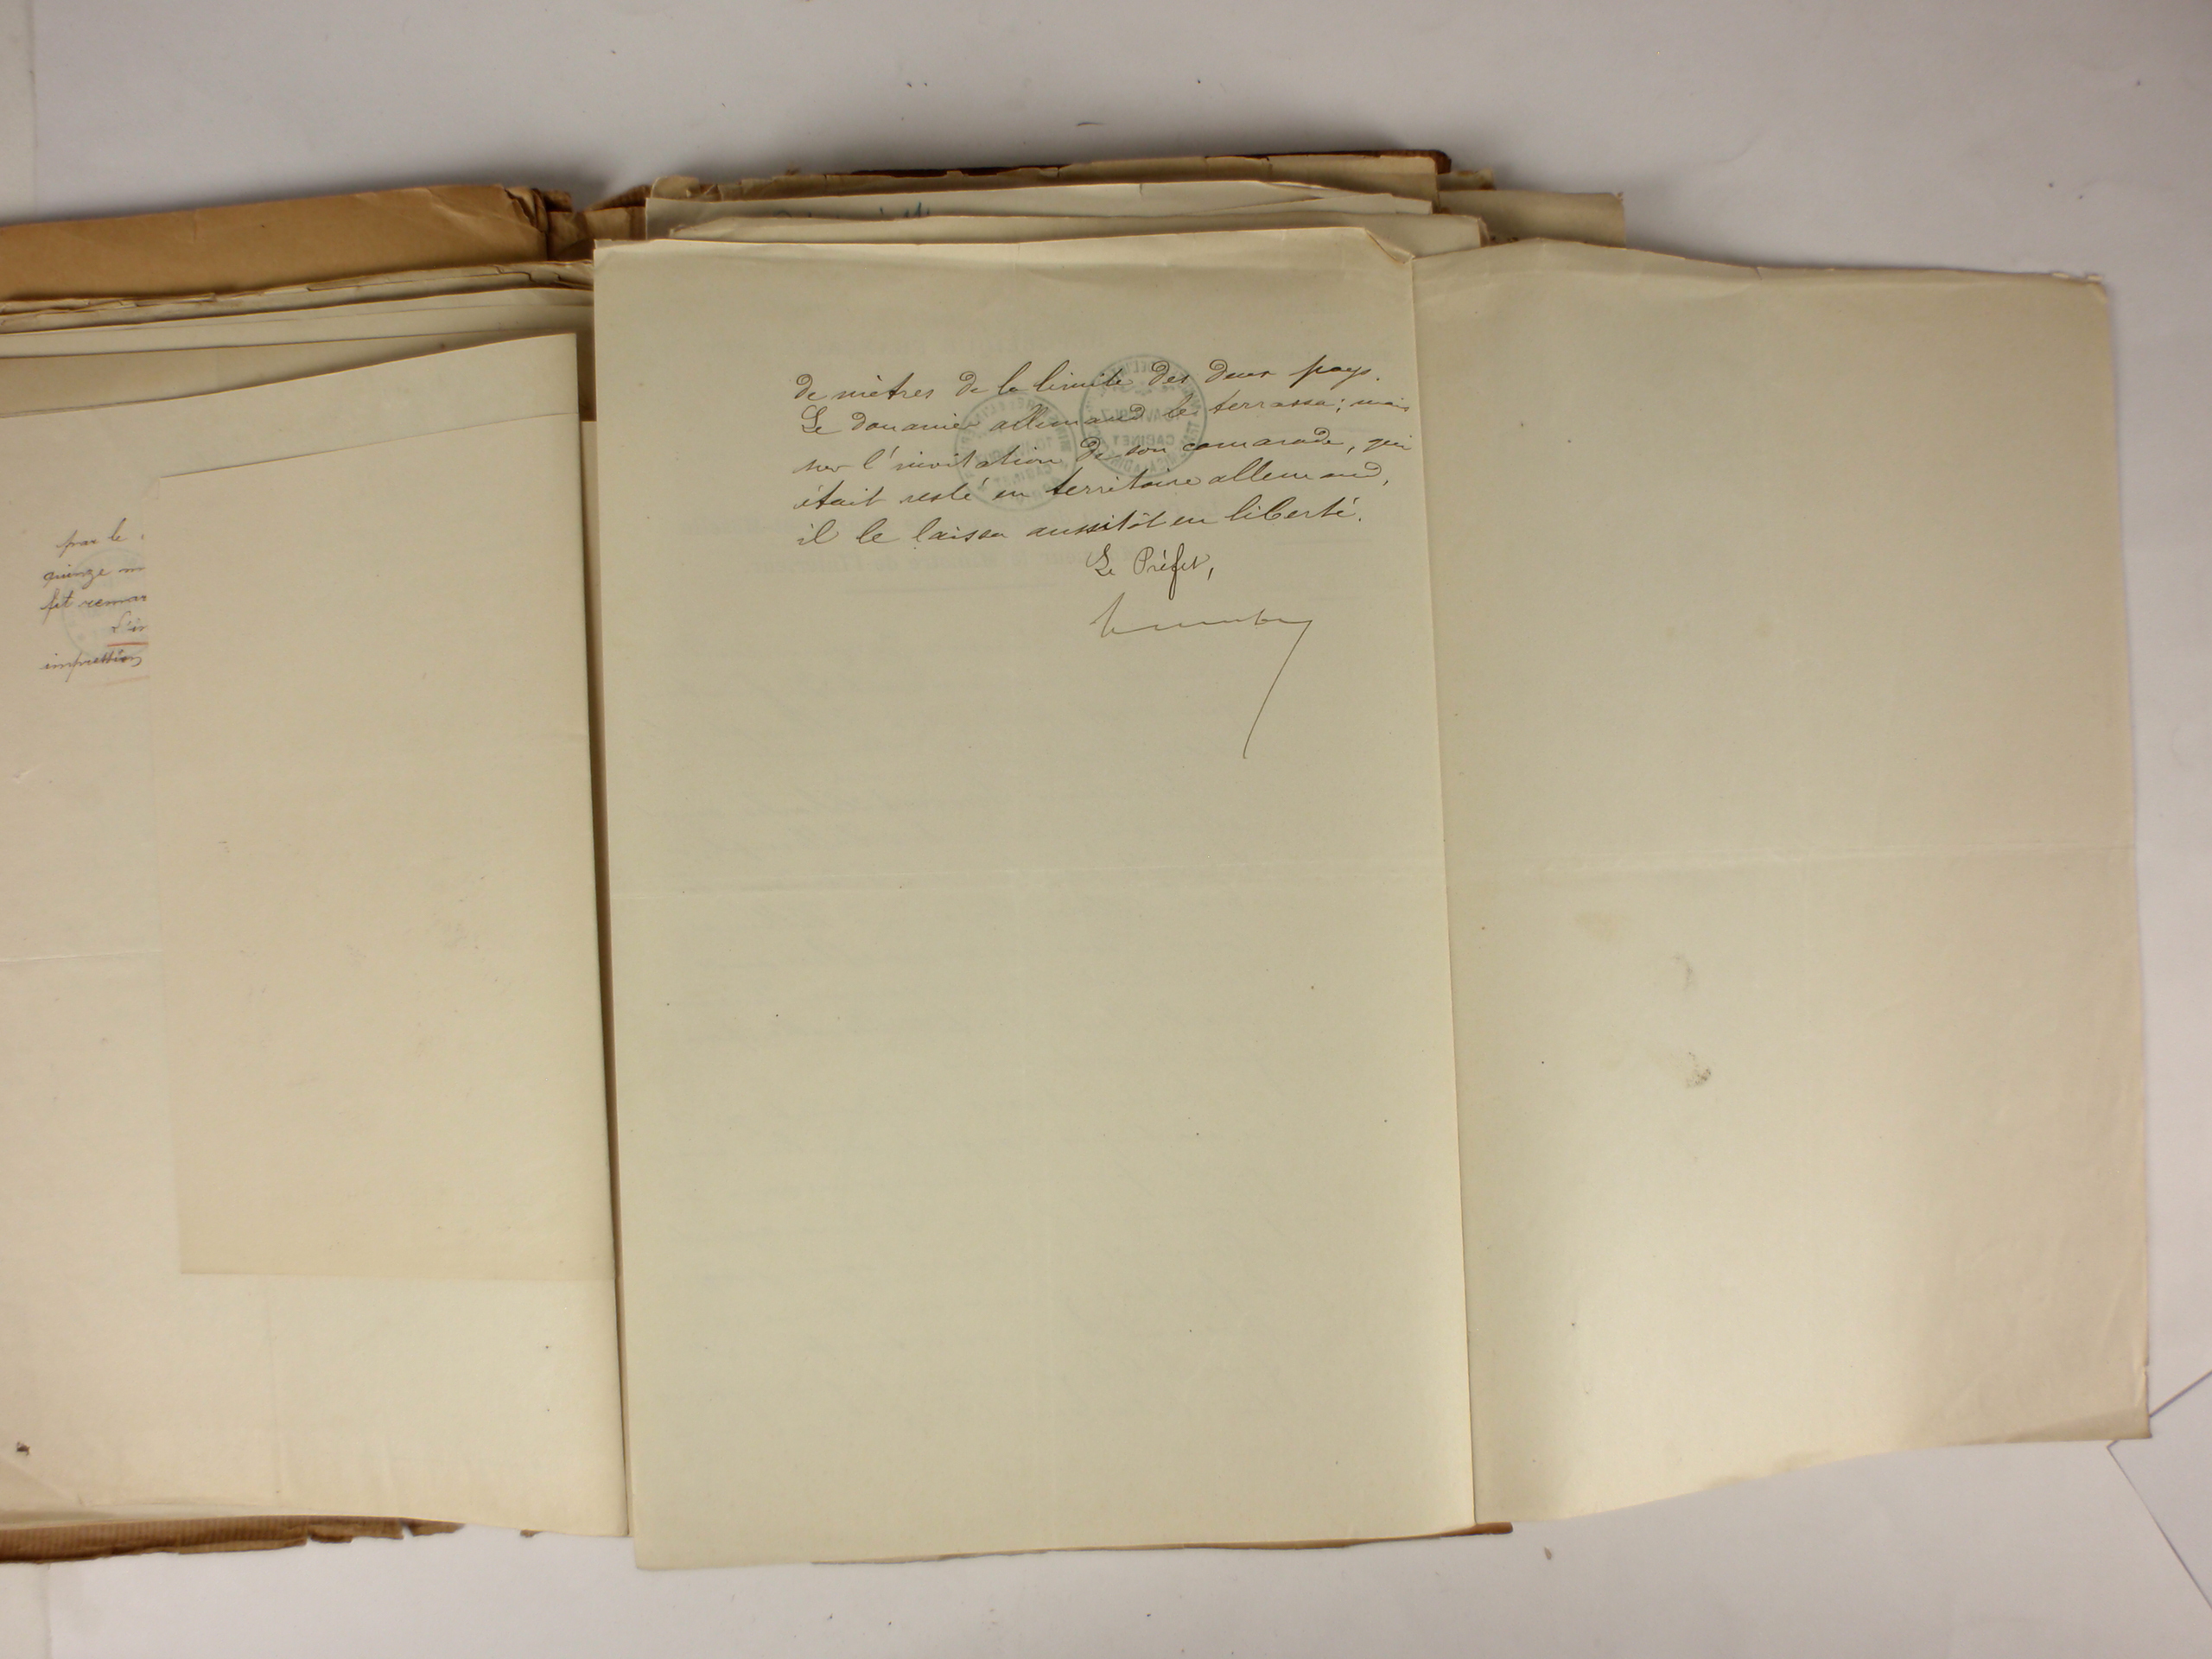 par le
quinze
fit remar
impression
de mètres de la limite des deux pays.
Le douanier allemand le terrassa; mais
sur l'invitation de son camarade, qui
était resté en territoire allemand,
il le laissa aussitôt en liberté.
Le Préfet,
CABINET